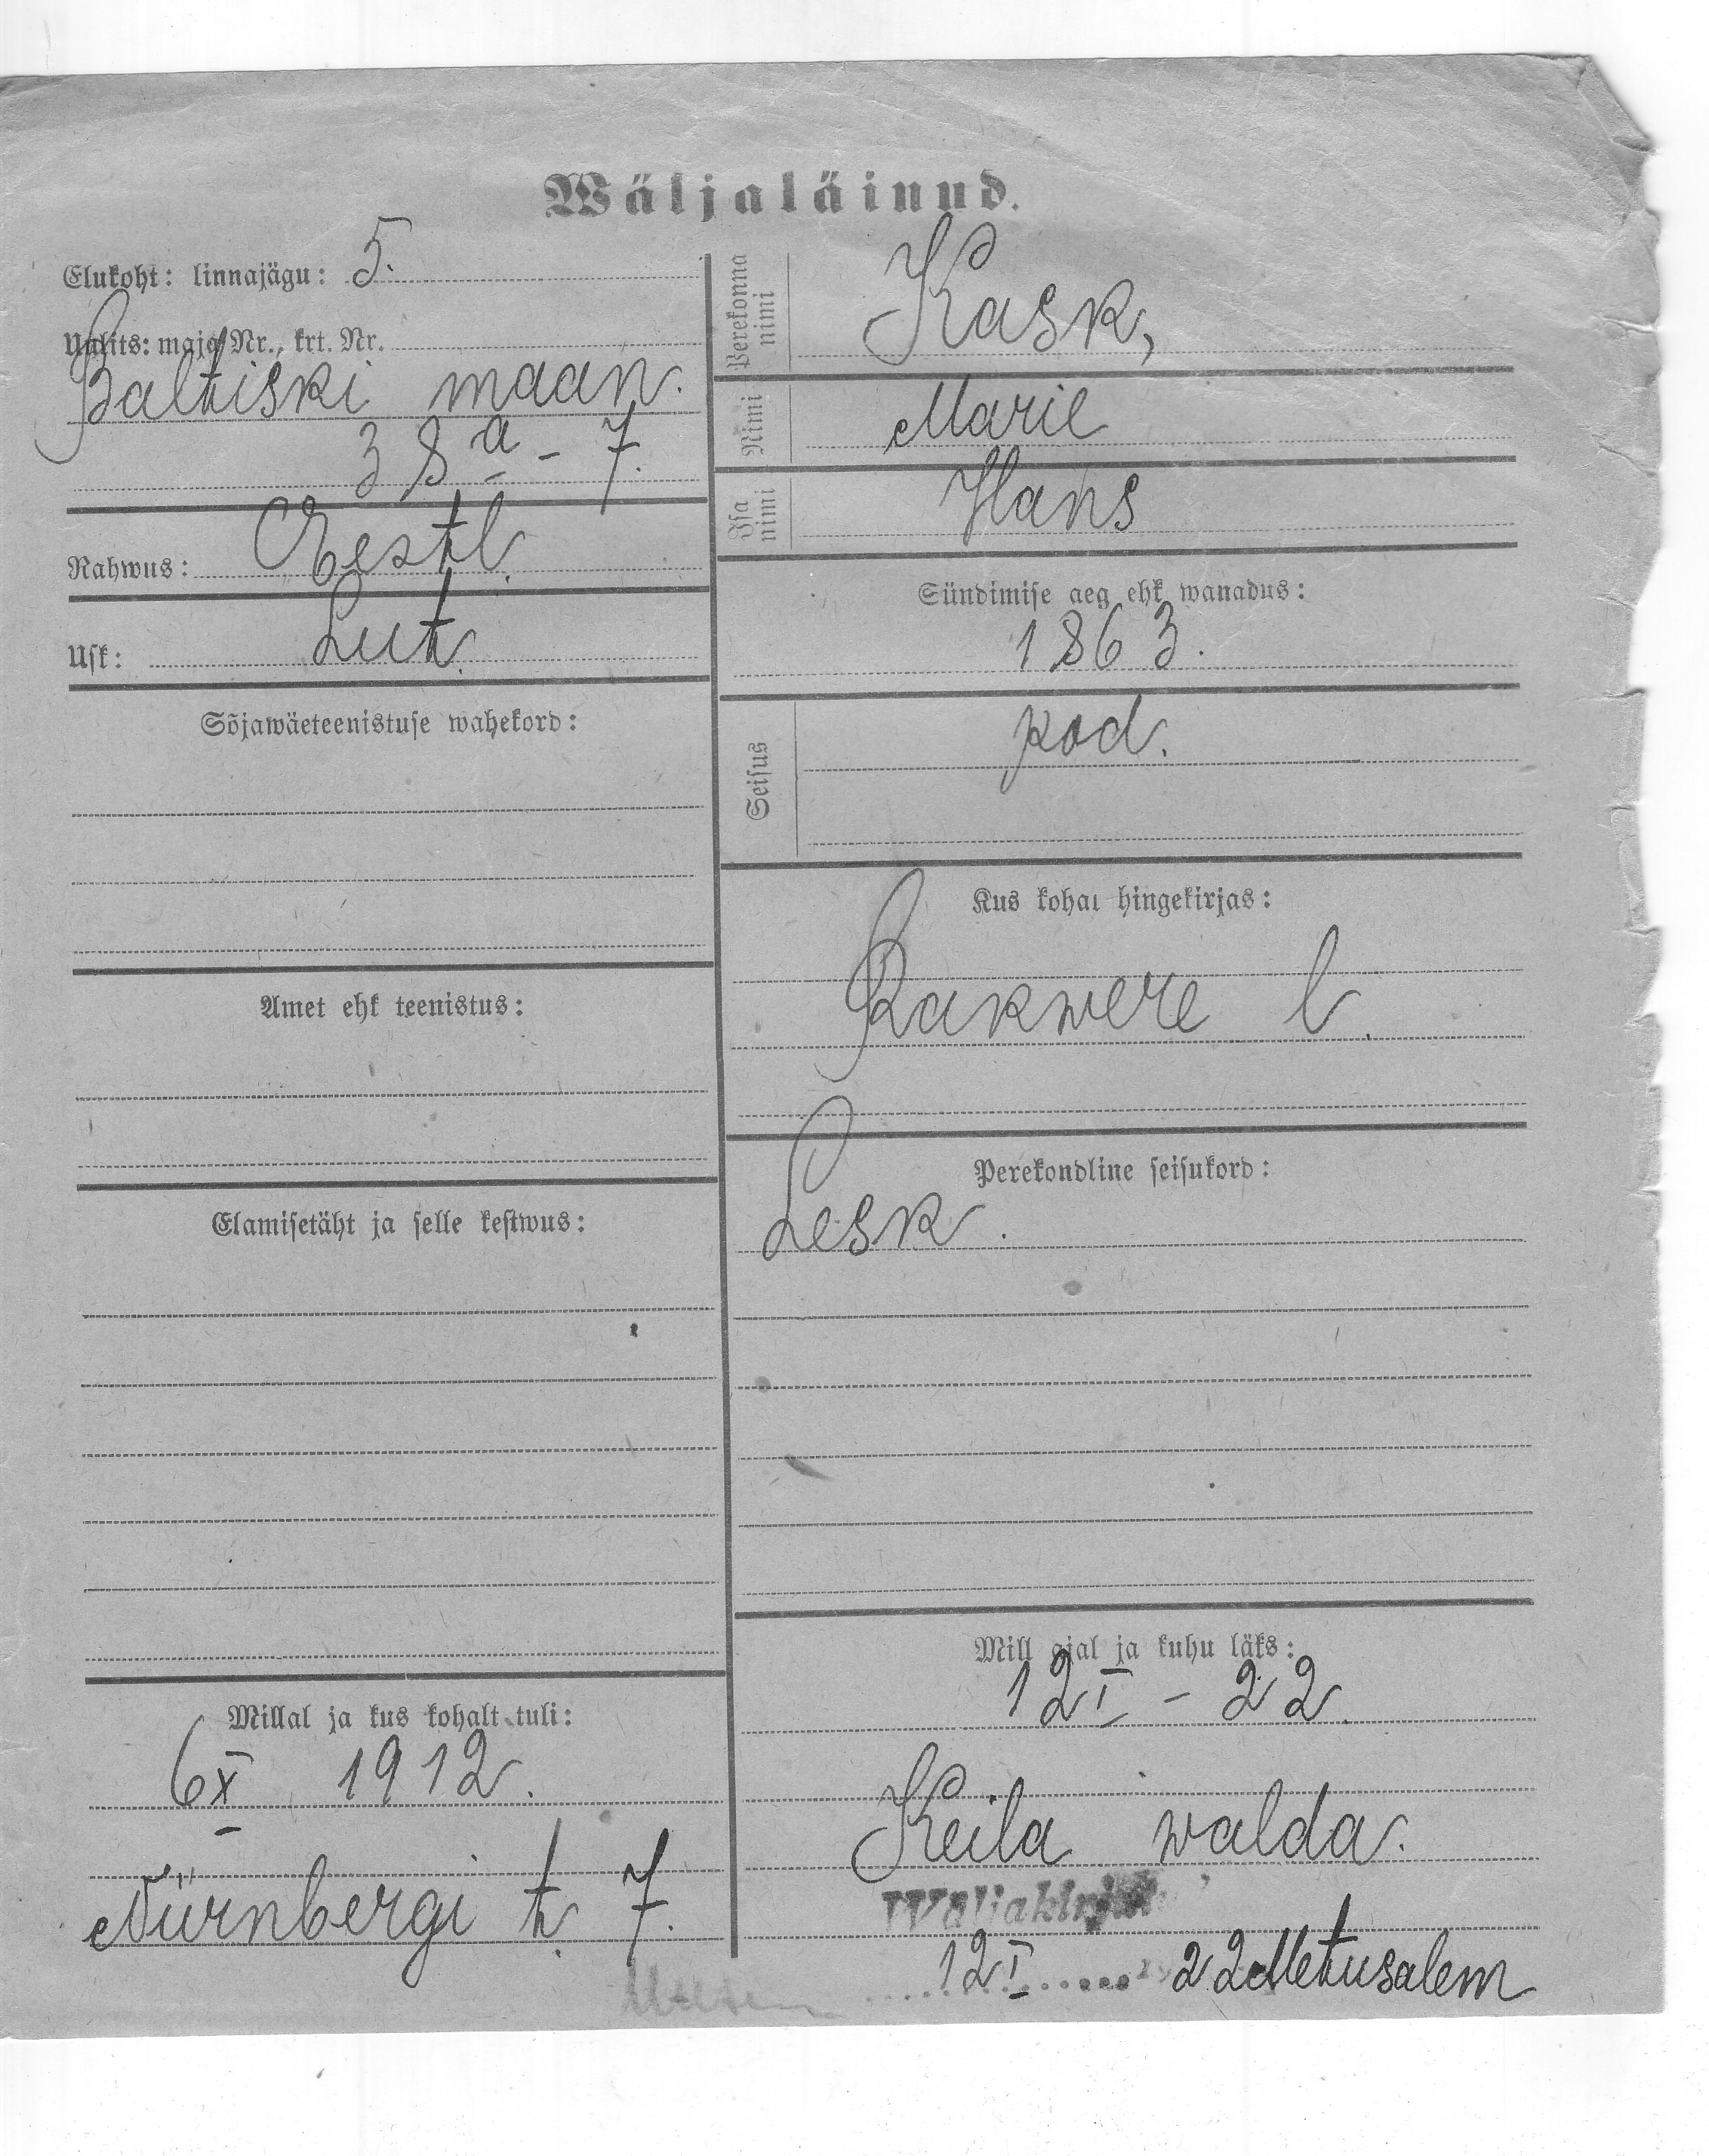 Wäljaläinud.
Elukoht: linnajägu: 5.
Uulits: maja Nr., krt. Nr.
Baltiski maan.
38 a - 7.
Rahwus: Eestl.
Usk: Lut.
Sõjawäeteenistuse wahekord:
Amet ehk teenistus:
Elamisetäht ja selle kestwus:
Millal ja kus kohalt tuli:
6 X 1912.
Nürnbergi t. 7.
Perekonna nimi
Kask,
Nimi
Marie
Isa nimi
Hans
Sündimise aeg ehk wanadus:
1863.
Seisus
kod.
Kus kohal hingekirjas:
Rakwere l.
Perekondline seisukord:
Lesk.
Mill ajal ja kuhu läks:
12 I - 22.
Keila walda.
Wäljakirjut
12 I 22 Metusalem